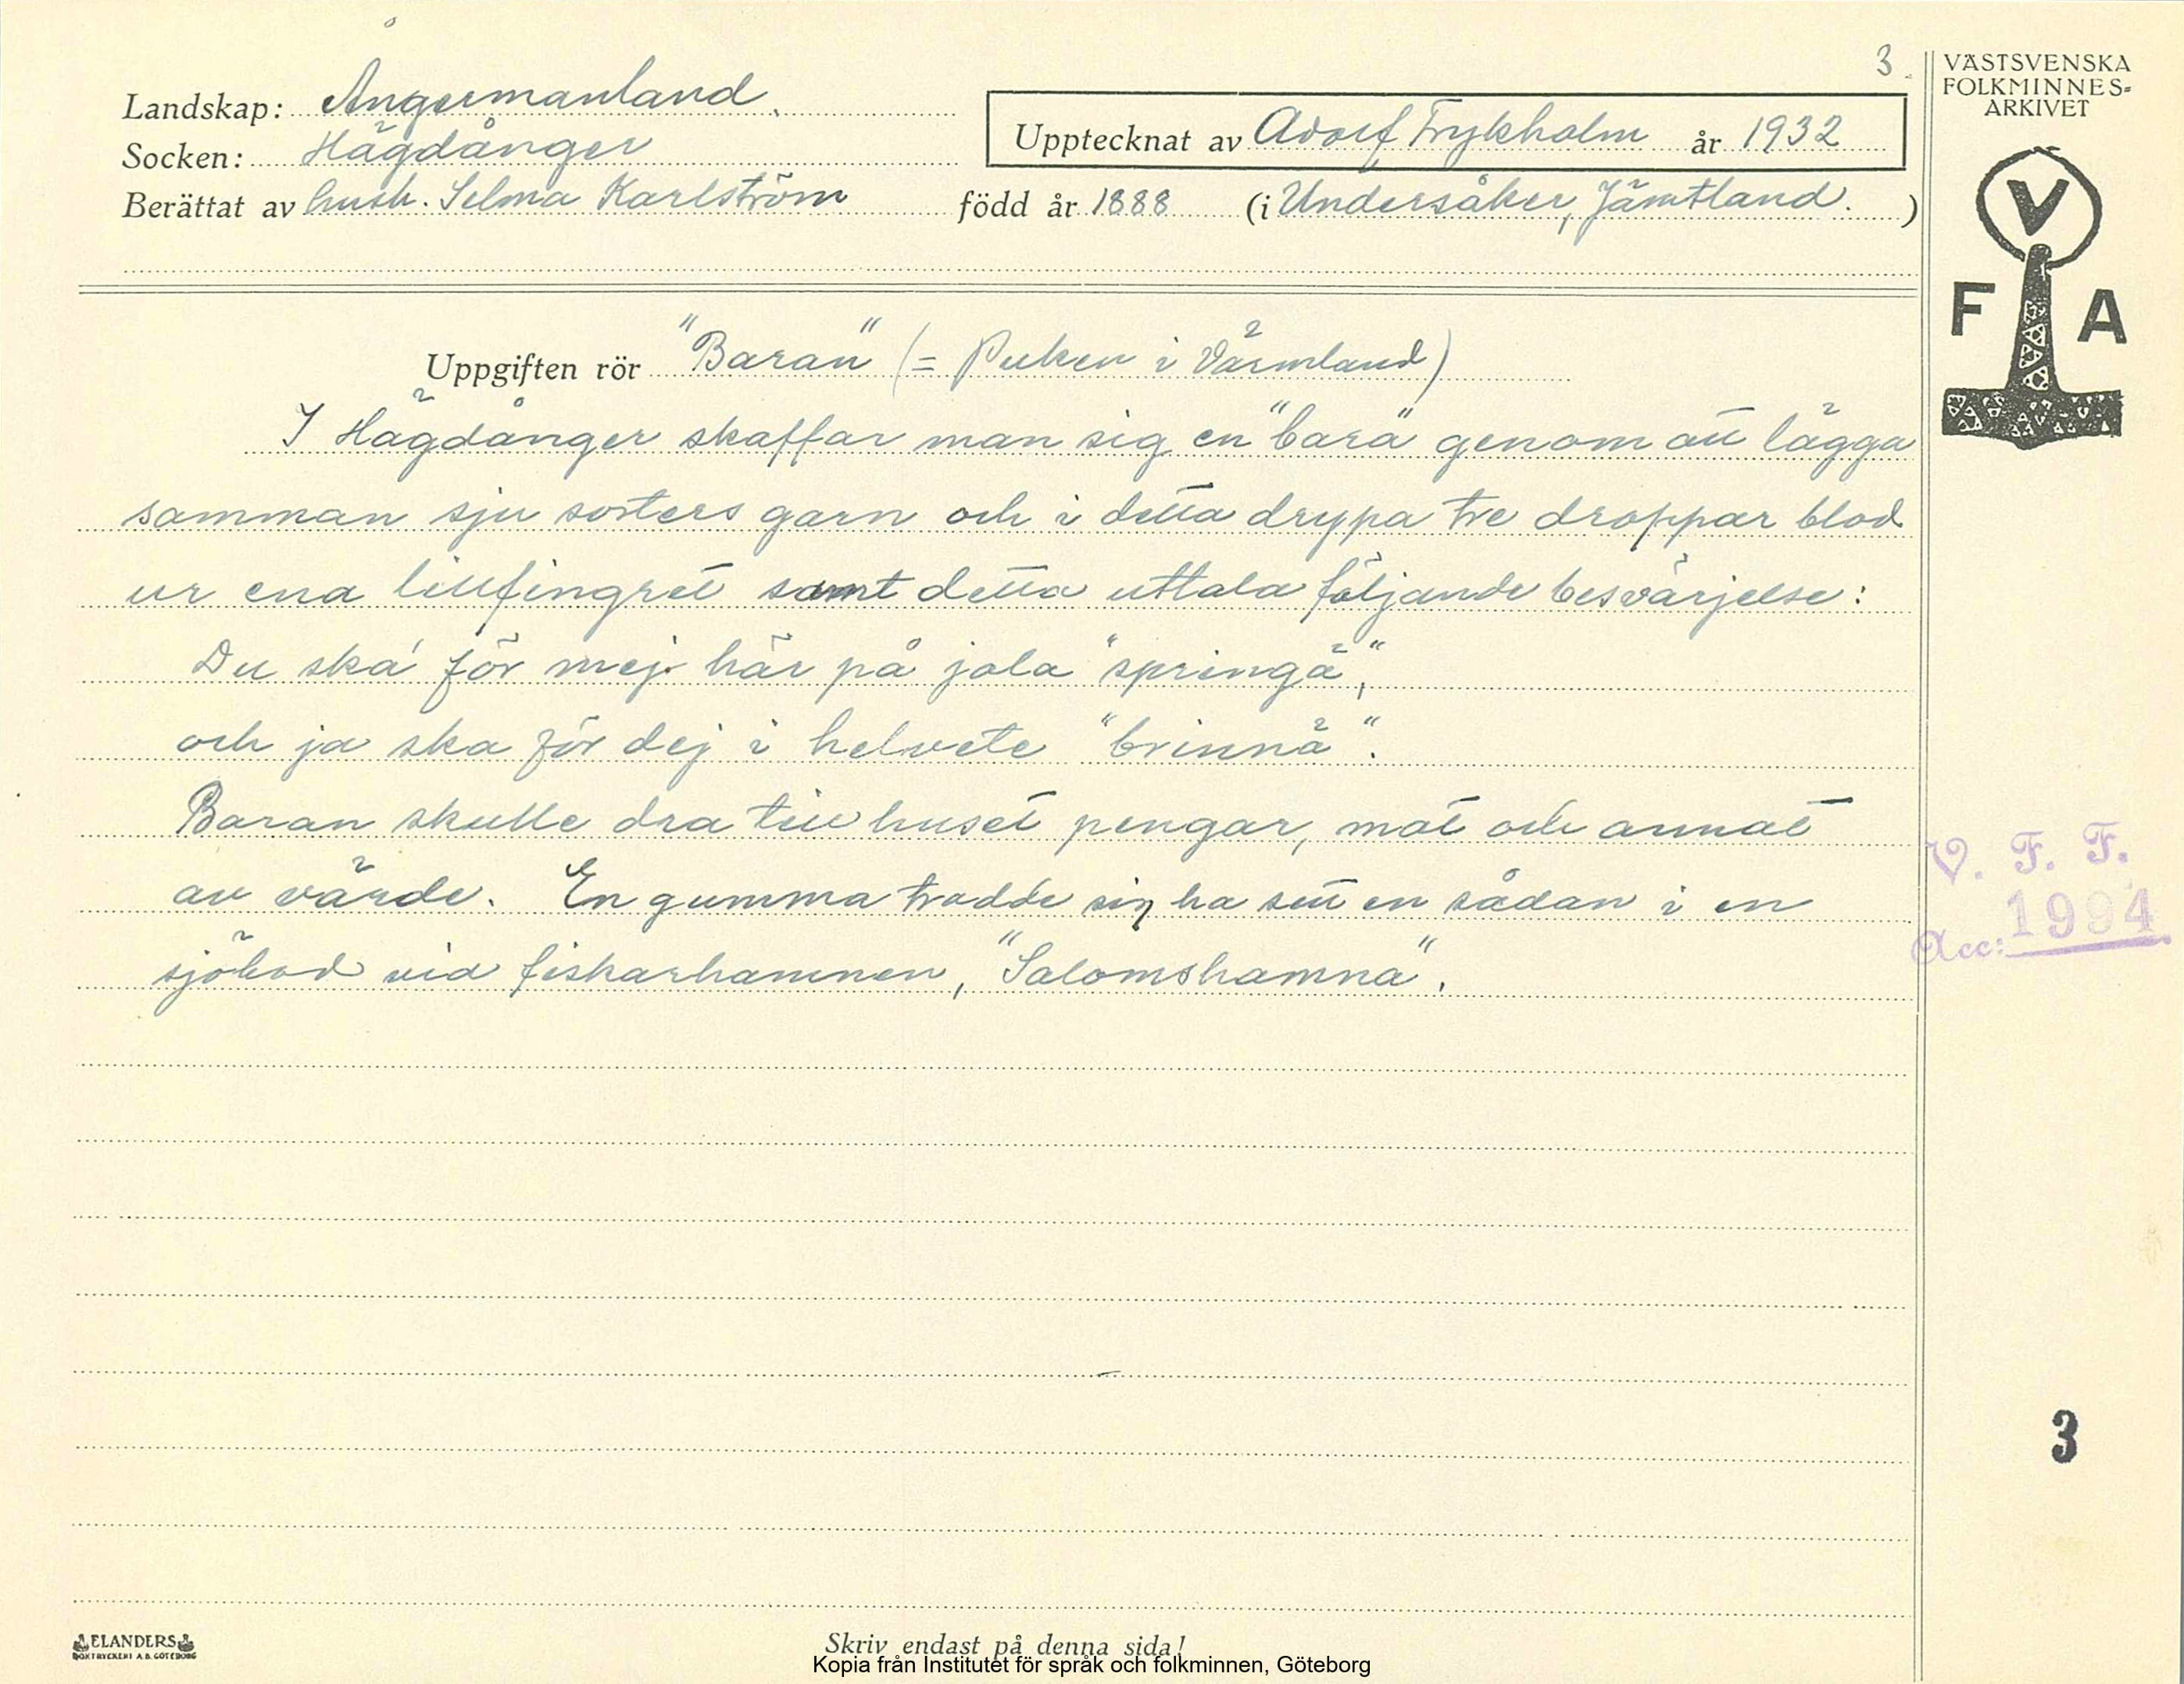 3.
VÄSTSVENSKA
FOLKMINNES-
ARKIVET
Landskap: Ångermanland.
Upptecknat av Adolf Frykholm år 1932
Socken: Hägdånger
Berättat av hush. Selma Karlström född år 1888 (i Undersåker, Jämtland.)
V
F A
Uppgiften rör "Baran" (= Puken i Värmland)
I Hägdånger skaffar man sig en "bara" genom att lägga
samman sju sorters garn och i detta drypa tre droppar blod
ur ena lillfingret samt detta uttala följande besvärjelse:
Du ska' för mej här på jola "springä",
och ja ska för dej i helvete "brinnä".
Baran skulle dra till huset pengar, mat och annat
av värde. En gumma trodde sig ha sett en sådan i en
sjöbod vid fiskarhamnen, "Salomshamna".
V. F. F.
Acc: 1994
3
ELANDERS
BOKTRYCKERI A.B. GÖTEBORG
Skriv endast på denna sida!
Kopia från Institutet för språk och folkminnen, Göteborg